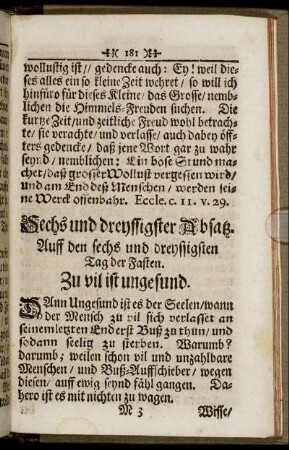 181
wollustig ist// gedencke auch: Ey! weil die-
ses alles ein so kleine Zeit wehret/ so will ich
hinfüro für dieses Kleine/ das Grosse/ nemb-
lichen die Himmels-Freuden suchen. Die
kurtze Zeit/und zeitliche Freud wohl betrach-
te/ sie verachte/ und verlasse/ auch dabey öff-
ters gedencke/ daß jene Wort gar zu wahr
seynd/ nemblichen: Ein böse Stund ma-
chet/daß grosser Wollust vergessen wird/
und am End deß Menschen/ werden sei-
ne Werck offenbahr. Eccle. c. 11. v. 29.
Sechs und dreyssigster Absatz.
Auff den sechs und dreyssigsten
Tag der Fasten.
Zu vil ist ungesund.
DAnn Ungesund ist es der Seelen/wann
der Mensch zu vil sich verlasset an
seinem letzten End erst Buß zu thun/ und
sodann seelig zu sterben. Warumb?
darumb; weilen schon vil und unzahlbare
Menschen/ und Buß-Auffschieber/ wegen
diesen/ auff ewig seynd fähl gangen. Da-
hero ist es mit nichten zu wagen.
M 3 Wisse/